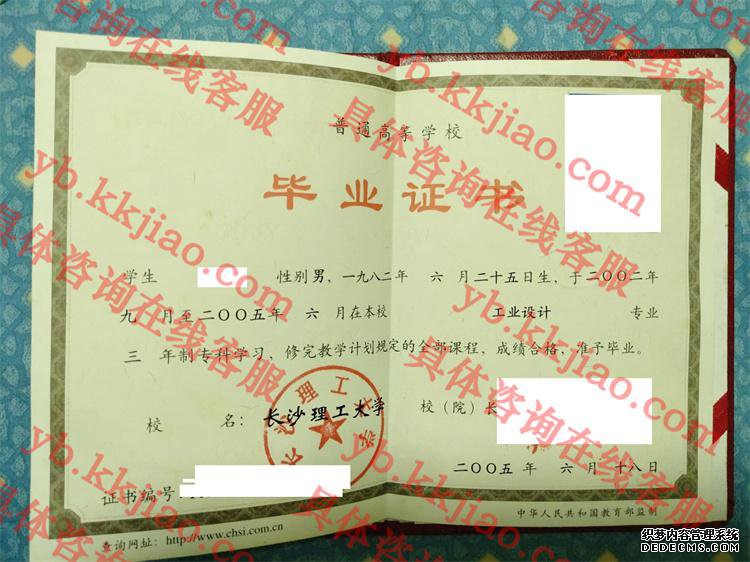 普通高等学校
毕业证书
学生 性别男，一九八二年 六 月二十五日生，于二〇〇二年
九 月至二〇〇五年 六 月在本校 工业设计 专业
三 年制专科学习，修完教学计划规定的全部课程，成绩合格，准予毕业。
校 名：长沙理工大学 校（院）长
长沙理工大学
二〇〇五 年 六 月 十八 日
证书编号
查询网址：http://www.chsi.com.cn
中华人民共和国教育部监制
具体咨询在线客服
yb.kkjiao.com
具体咨询在线客服
yb.kkjiao.com
具体咨询在线客服
yb.kkjiao.com
织梦内容管理系统
DEDECMS.COM